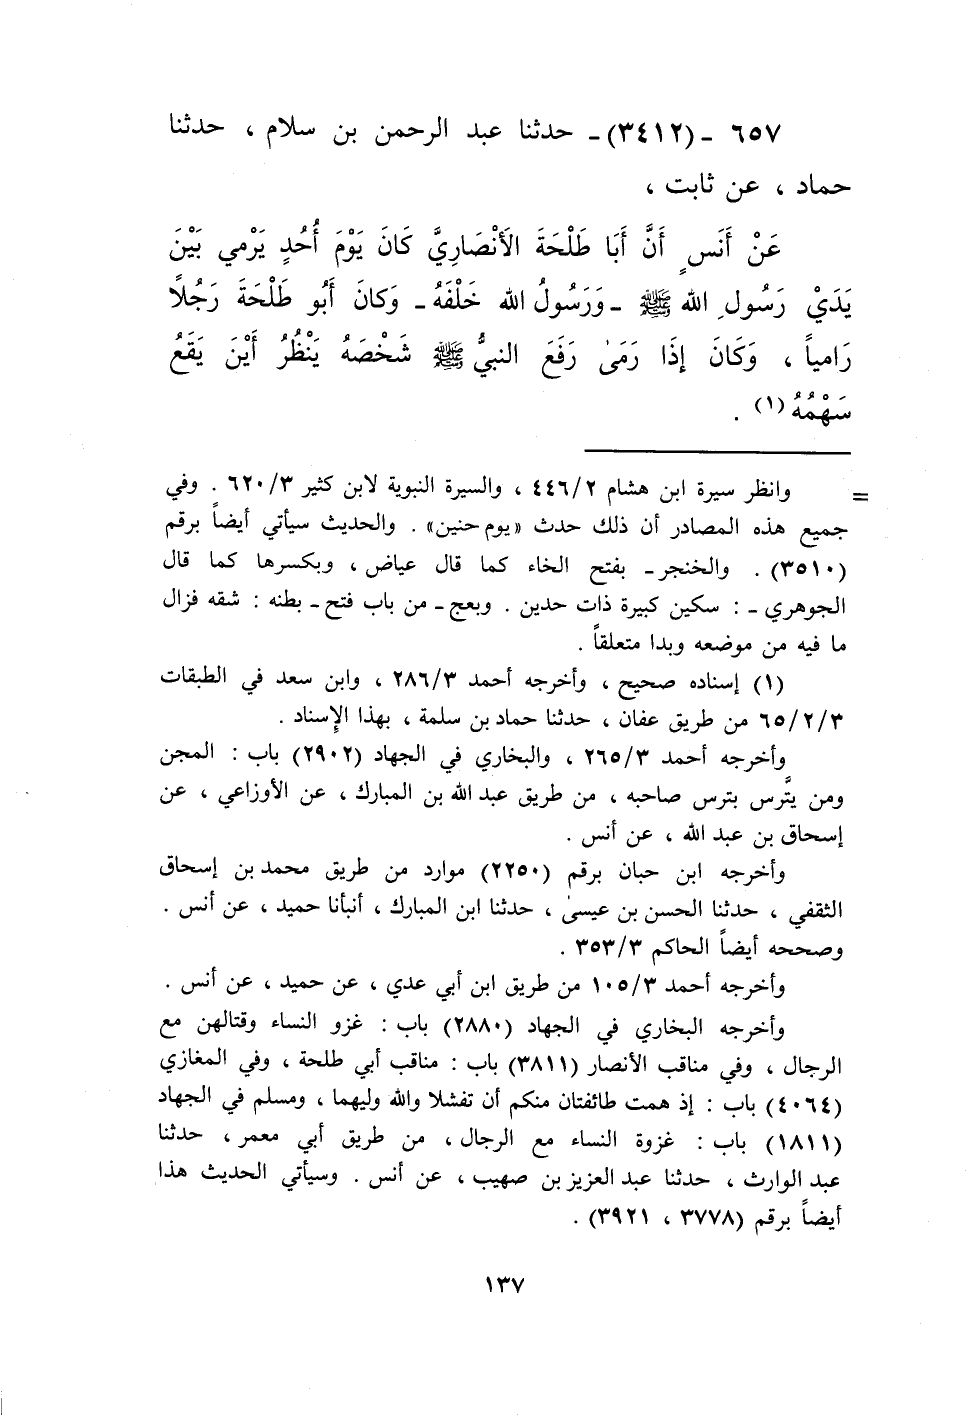 ٦٥٧ ـ (٣٤١٢) ـ حدثنا عبد الرحمن بن سلام ، حدثنا
حماد ، عن ثابت ،
عَنْ أَنَسٍ أَنَّ أَبَا طَلْحَةَ الأَنْصَارِيَّ كَانَ يَوْمَ أُحُدٍ يَرْمي بَيْنَ
يَدَيْ رَسُولِ الله ﷺ ـ وَرَسُولُ الله خَلْفَهُ ـ وَكانَ أَبُو طَلْحَةَ رَجُلًا
رَامياً ، وَكَانَ إِذَا رَمَىٰ رَفَعَ النبيُّ ﷺ شَخْصَهُ يَنْظُرُ أَيْنَ يَقَعُ
سَهْمُهُ (١) .
= وانظر سيرة ابن هشام ٤٤٦/٢ ، والسيرة النبوية لابن كثير ٦٢٠/٣ . وفي
جميع هذه المصادر أن ذلك حدث «يوم حنين» . والحديث سيأتي أيضاً برقم
(٣٥١٠) . والخنجر ـ بفتح الخاء كما قال عياض ، وبكسرها كما قال
الجوهري ـ : سكين كبيرة ذات حدين . وبعج ـ من باب فتح ـ بطنه : شقه فزال
ما فيه من موضعه وبدا متعلقاً .
(١) إسناده صحيح ، وأخرجه أحمد ٢٨٦/٣ ، وابن سعد في الطبقات
٦٥/٢/٣ من طريق عفان ، حدثنا حماد بن سلمة ، بهذا الإسناد .
وأخرجه أحمد ٢٦٥/٣ ، والبخاري في الجهاد (٢٩٠٢) باب : المجن
ومن يتَّرس بترس صاحبه ، من طريق عبد الله بن المبارك ، عن الأوزاعي ، عن
إسحاق بن عبد الله ، عن أنس .
وأخرجه ابن حبان برقم (٢٢٥٠) موارد من طريق محمد بن إسحاق
الثقفي ، حدثنا الحسن بن عيسىٰ ، حدثنا ابن المبارك ، أنبأنا حميد ، عن أنس .
وصححه أيضاً الحاكم ٣٥٣/٣ .
وأخرجه أحمد ١٠٥/٣ من طريق ابن أبي عدي ، عن حميد ، عن أنس .
وأخرجه البخاري في الجهاد (٢٨٨٠) باب : غزو النساء وقتالهن مع
الرجال ، وفي مناقب الأنصار (٣٨١١) باب : مناقب أبي طلحة ، وفي المغازي
(٤٠٦٤) باب : إذ همت طائفتان منكم أن تفشلا والله وليهما ، ومسلم في الجهاد
(١٨١١) باب : غزوة النساء مع الرجال ، من طريق أبي معمر ، حدثنا
عبد الوارث ، حدثنا عبد العزيز بن صهيب ، عن أنس . وسيأتي الحديث هذا
أيضاً برقم (٣٧٧٨ ، ٣٩٢١) .
١٣٧